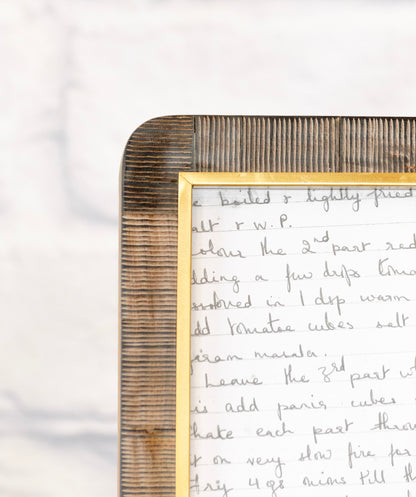 e boiled & lightly fried
alt & W.P.
olour the 2nd part red
dding a few drops toma
ssolved in 1 dsp warm
dd tomatoe cubes salt
aram masala.
Leave the 3rd part wh
is add panir cubes
heat each part throu
t on very slow fire for
Fry 4 ozs onions till th